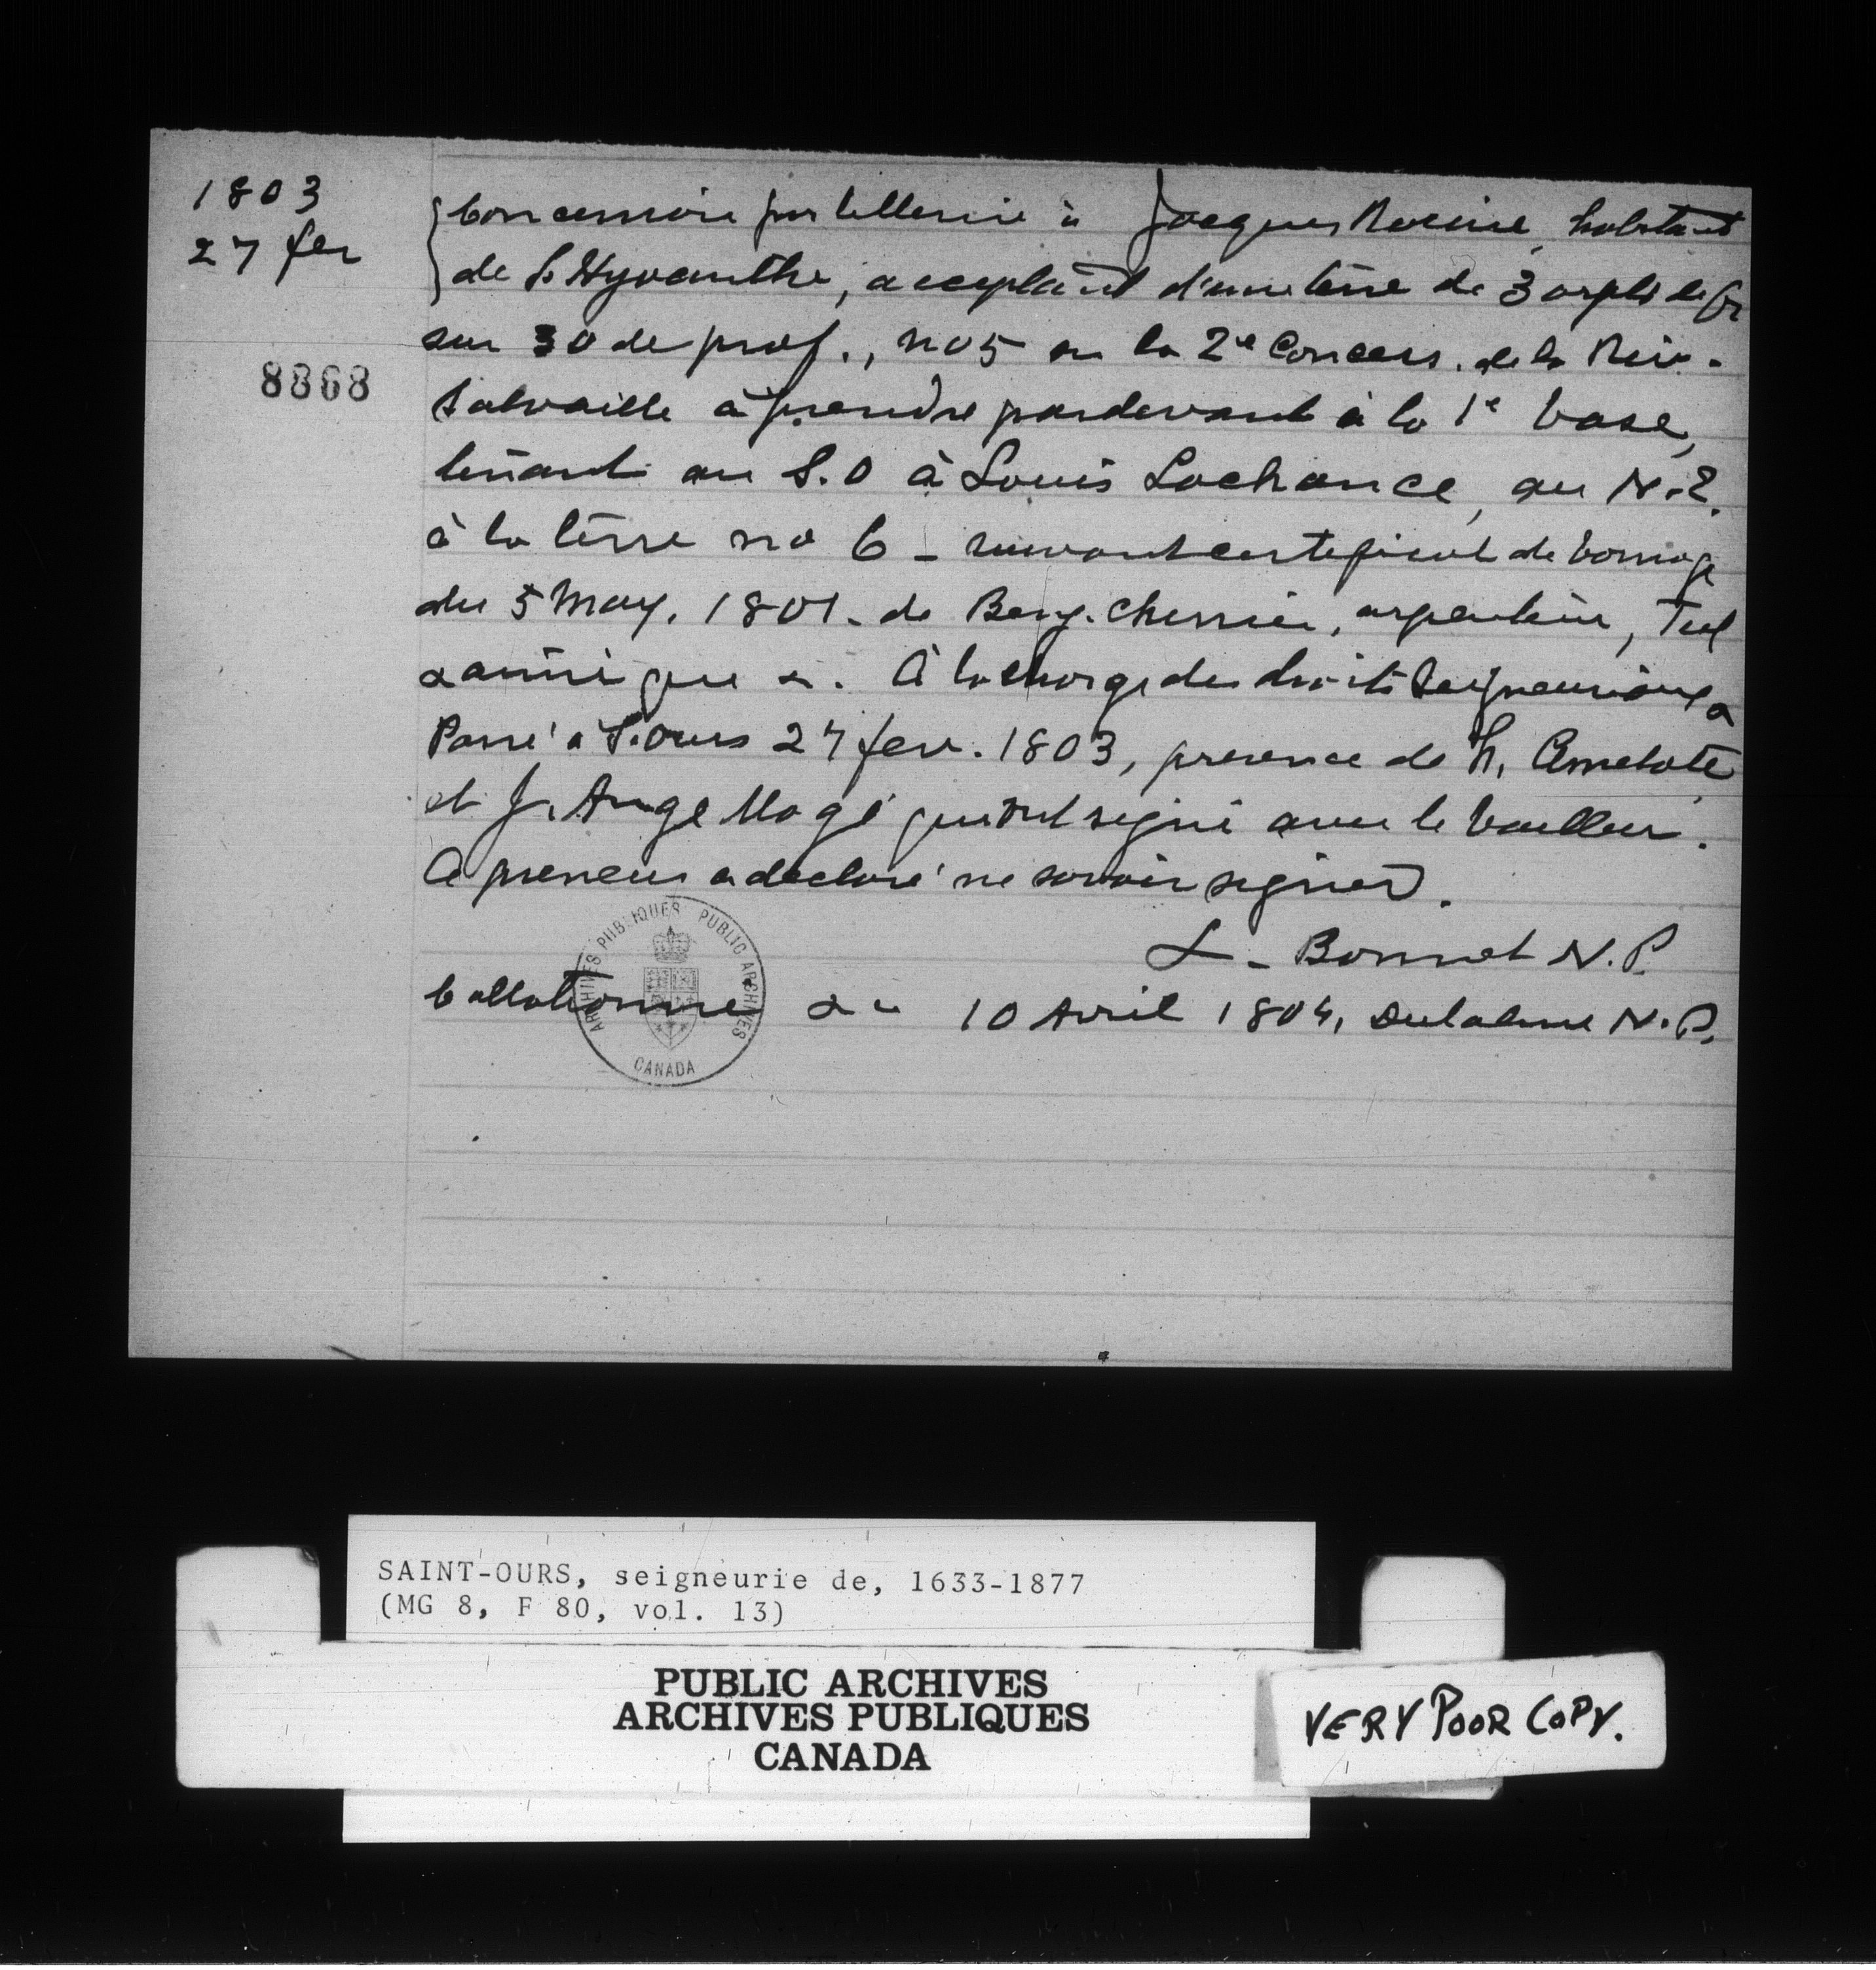 1803
27 fev
8868
Concession par Cellerier à Jacques Racine, habitant
de S. Hyacinthe, acceptant d'une terre de 3 arpts de fr
sur 30 de prof., no 5 en la 2e Concess. de la Riv.
Salvaille à prendre pardevant à la 1e base,
tenant au S.O à Louis Lachance, au N.E.
à la terre no 6 - suivant certificat de bornage
du 5 May, 1801. de Benj. Cherrier, arpenteur, Tel
& ainsi que &. À la charge des droits Seigneuriaux
Passé à S. Ours 27 fev. 1803, presence de h. Amelotte
et J. Ange Magé qui ont signé avec le bailleur.
Le preneur a declaré ne savoir signer.
L - Bonnet N.P.
Collationné &c 10 Avril 1804, N.P.
ARCHIVES PUBLIQUES PUBLIC ARCHIVES
CANADA
SAINT-OURS, seigneurie de, 1633-1877
(MG 8, F 80, vol. 13)
PUBLIC ARCHIVES
ARCHIVES PUBLIQUES
CANADA
VERY POOR COPY.